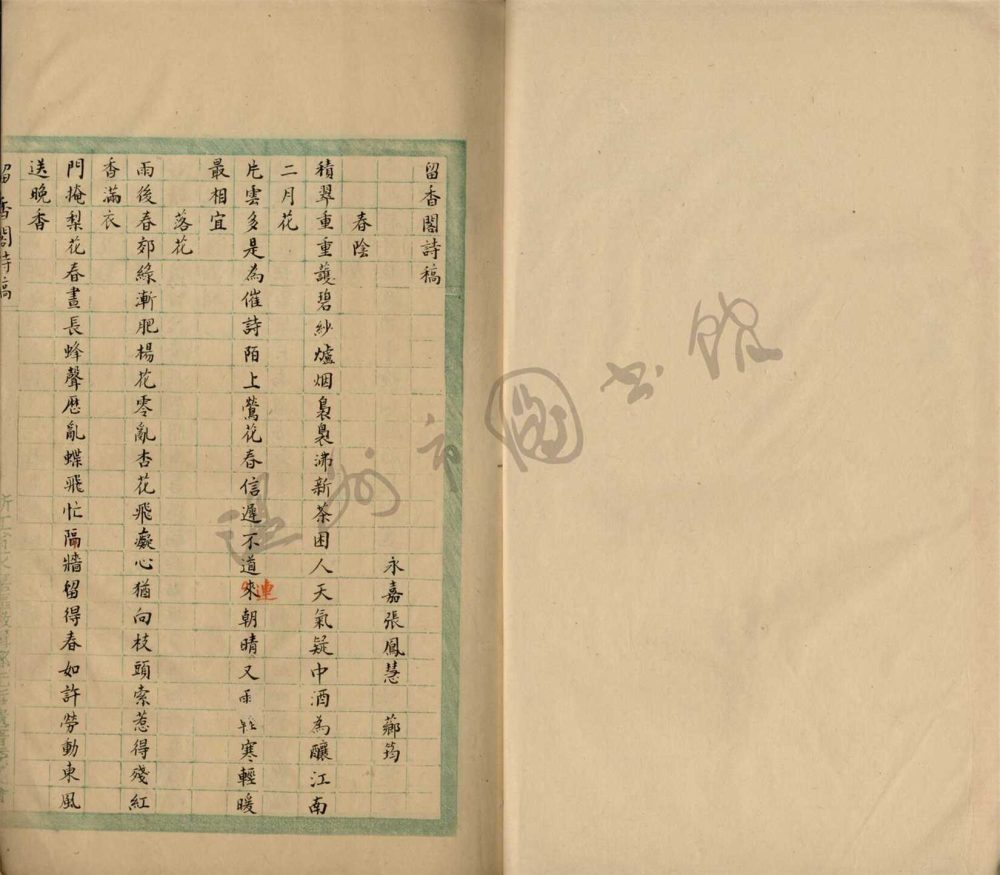 留香閣詩稿
永嘉張鳳慧 薌筠
春陰
積翠重重護碧紗爐烟裊裊沸新茶困人天氣疑中酒為釀江南
二月花
片雲多是為催詩陌上鶯花春信遲不道來朝晴又雨輕寒輕暖
連
最相宜
落花
雨後春郊綠漸肥楊花零亂杏花飛癡心猶向枝頭索惹得殘紅
香滿衣
門掩梨花春晝長蜂聲歷亂蝶飛忙隔牆留得春如許勞動東風
送晚香
留香閣詩稿
溫州市圖書館